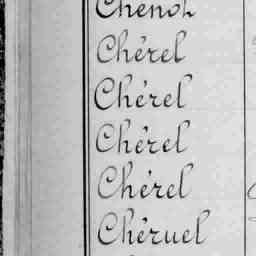 Chenot
Chérel
Chérel
Chérel
Chérel
Chéruel